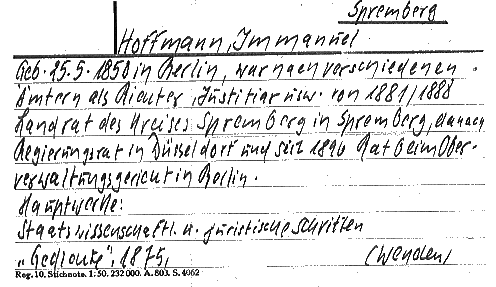 Spremberg
Hoffmann, Immanuel
Geb. 15.5.1850 in Berlin, war nach verschiedenen
Ämtern als Richter, Justitiar usw. von 1881/1888
Landrat des Kreises Spremberg in Spremberg, danach
Regierungsrat in Düsseldorf und seit 1896 Rat beim Ober-
verwaltungsgericht in Berlin.
Hauptwerke:
Staatswissenschaftl. u. juristische Schriften
„Gedichte", 1875,
(Wenden)
Reg. 10. Stichnote. 1:50. 232 000. A. 803. S. 4062